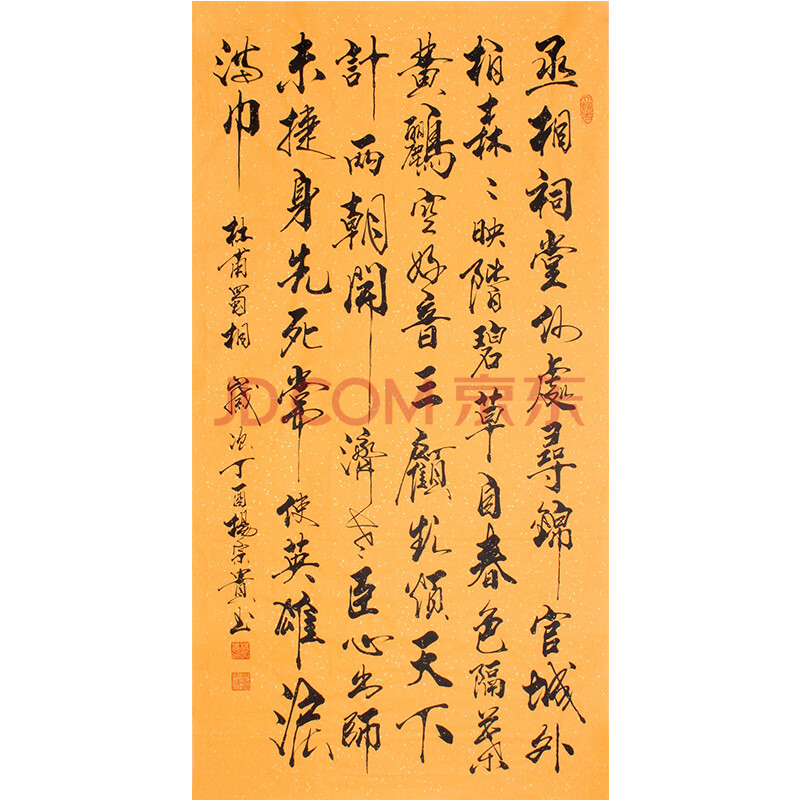 丞相祠堂何處尋錦官城外
柏森々映階碧草自春色隔葉
黄鸝空好音三顧頻煩天下
計兩朝開濟老臣心出師
未捷身先死常使英雄淚
滿巾
杜甫蜀相 歲次丁酉楊宗貴书
JD.COM 京东